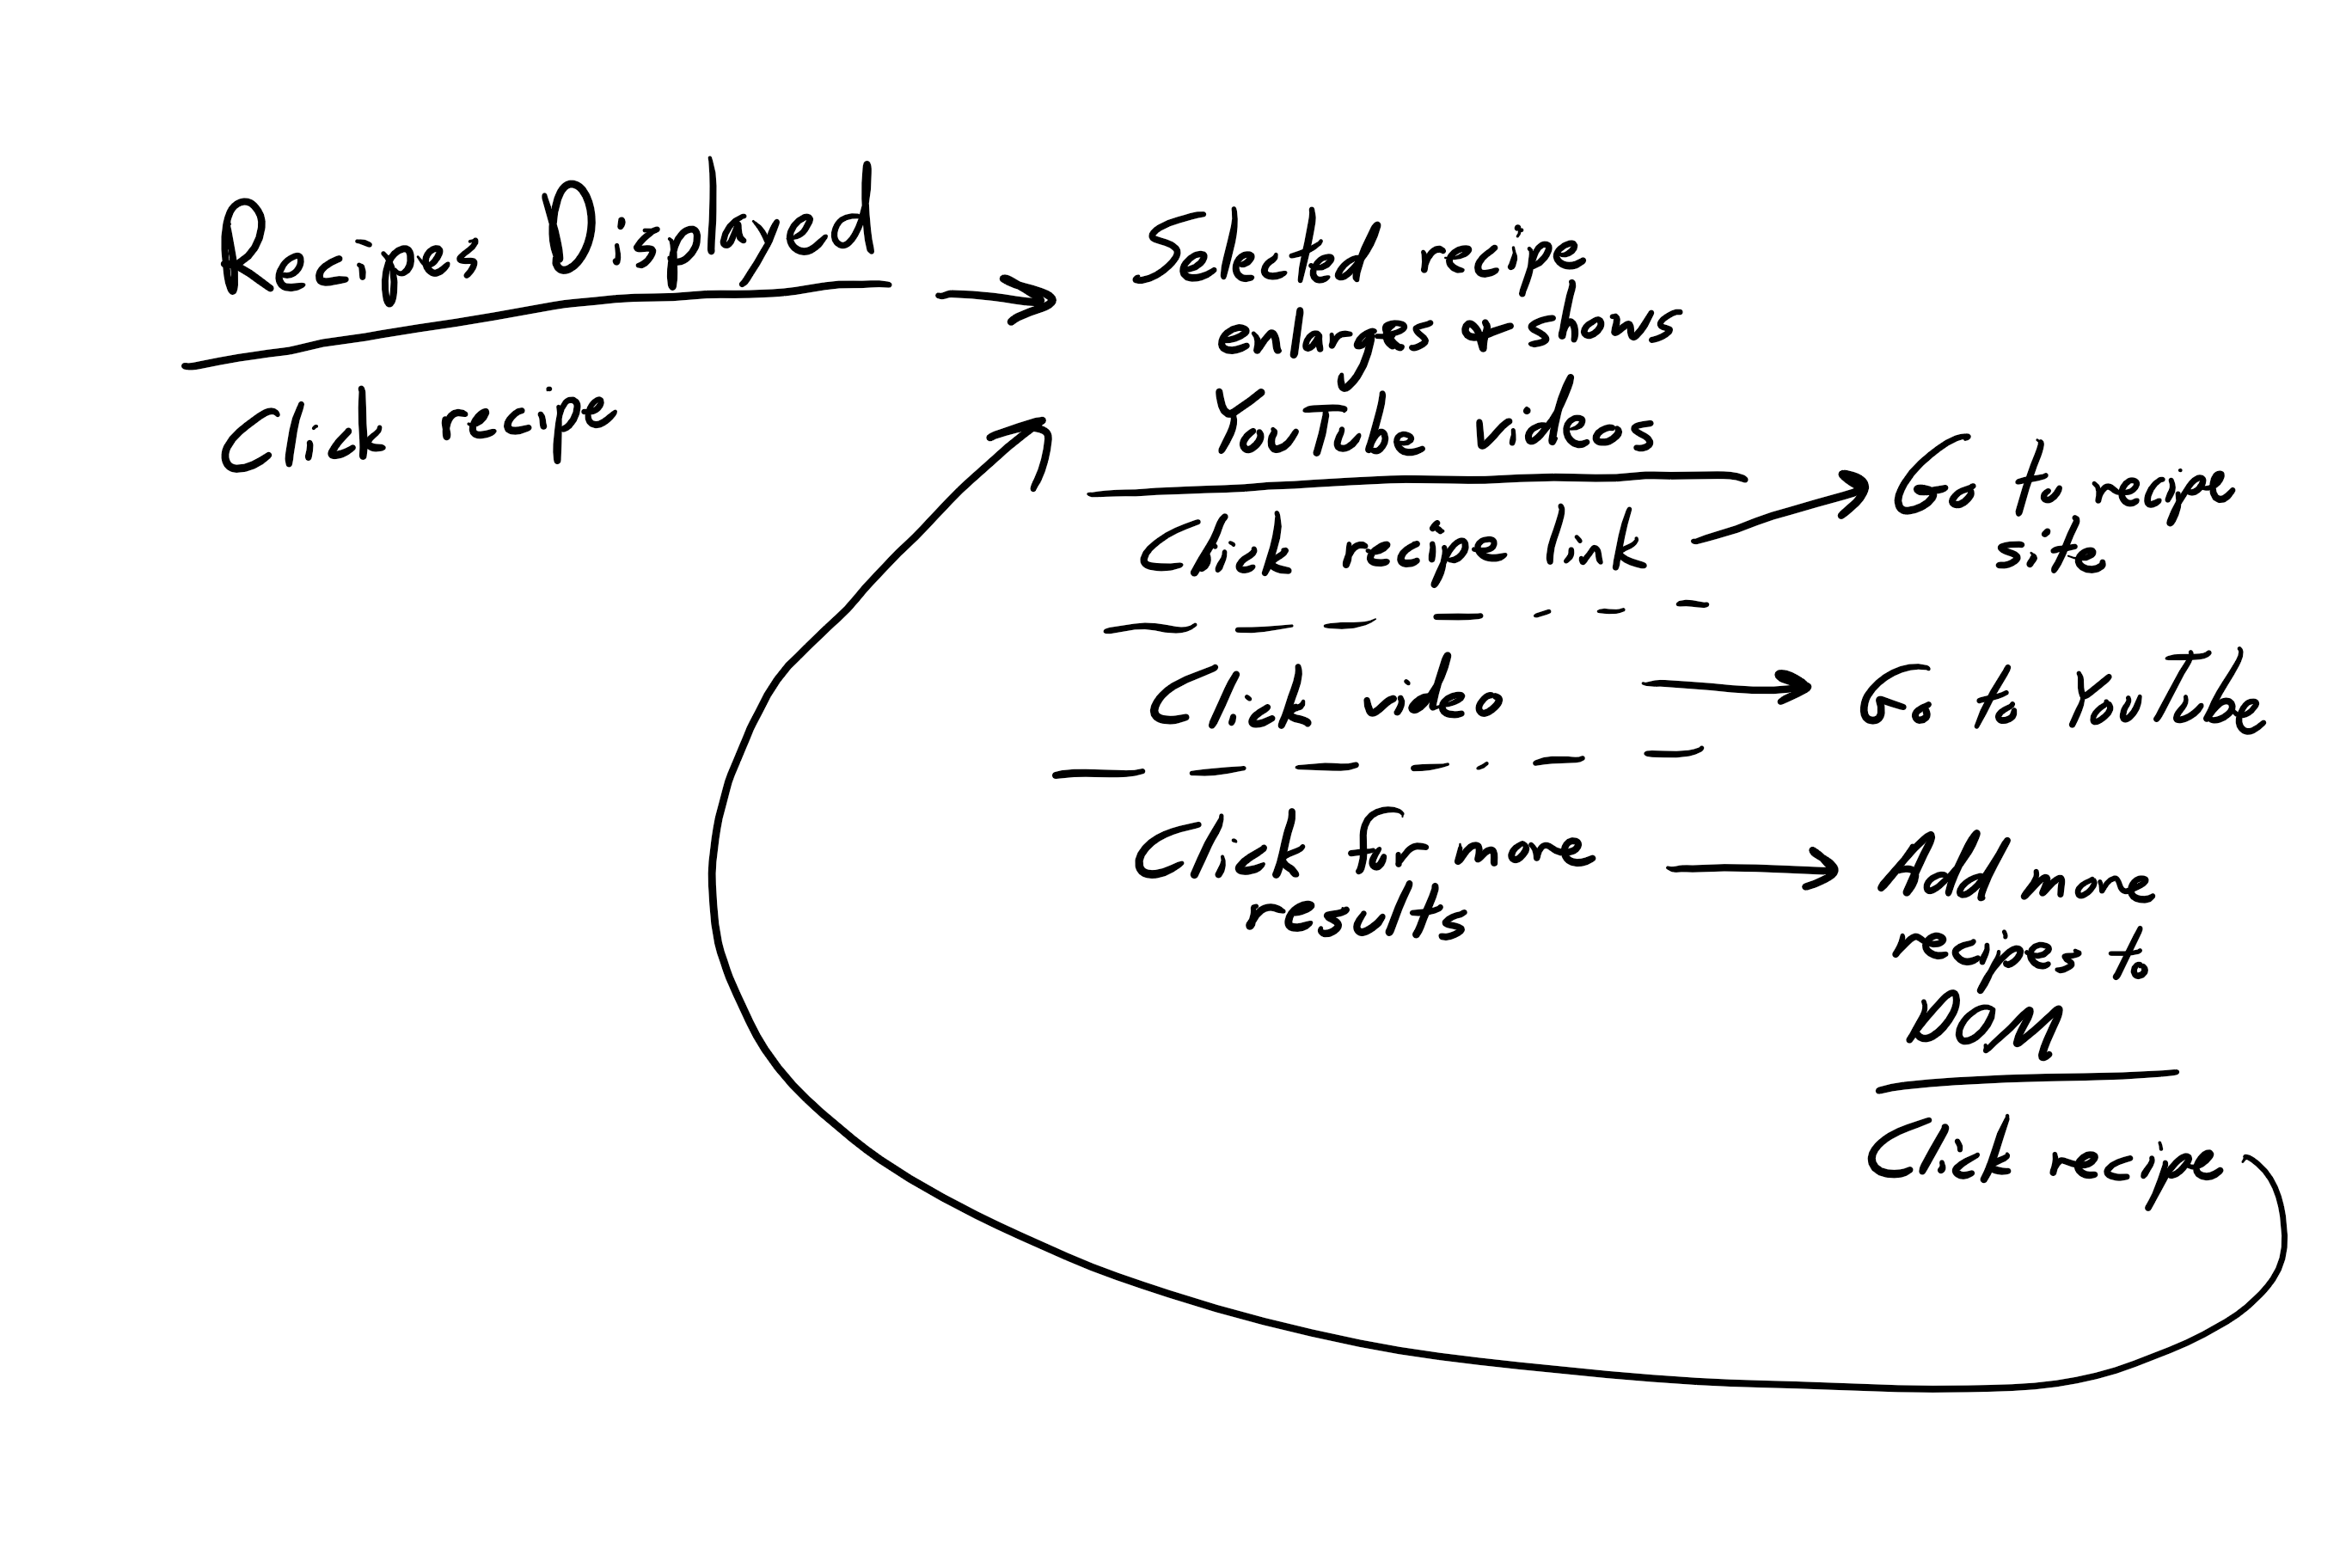 Recipes Displayed
Click recipe
Selected recipe
enlarges + shows
YouTube videos
Click recipe link
Go to recipe
site
Click video
Go to YouTube
Click for more
results
Add more
recipes to
DOM
Click recipe